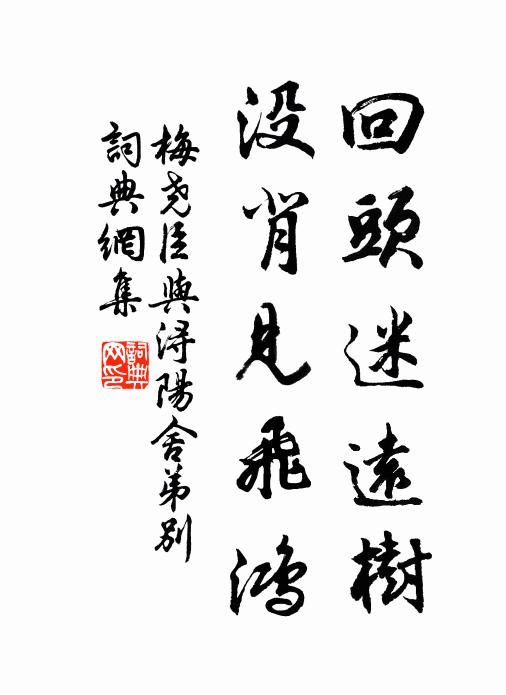 回頭迷遠樹
没背見飛鴻
梅堯臣與潯陽舍弟別
詞典網集
詞典
网印